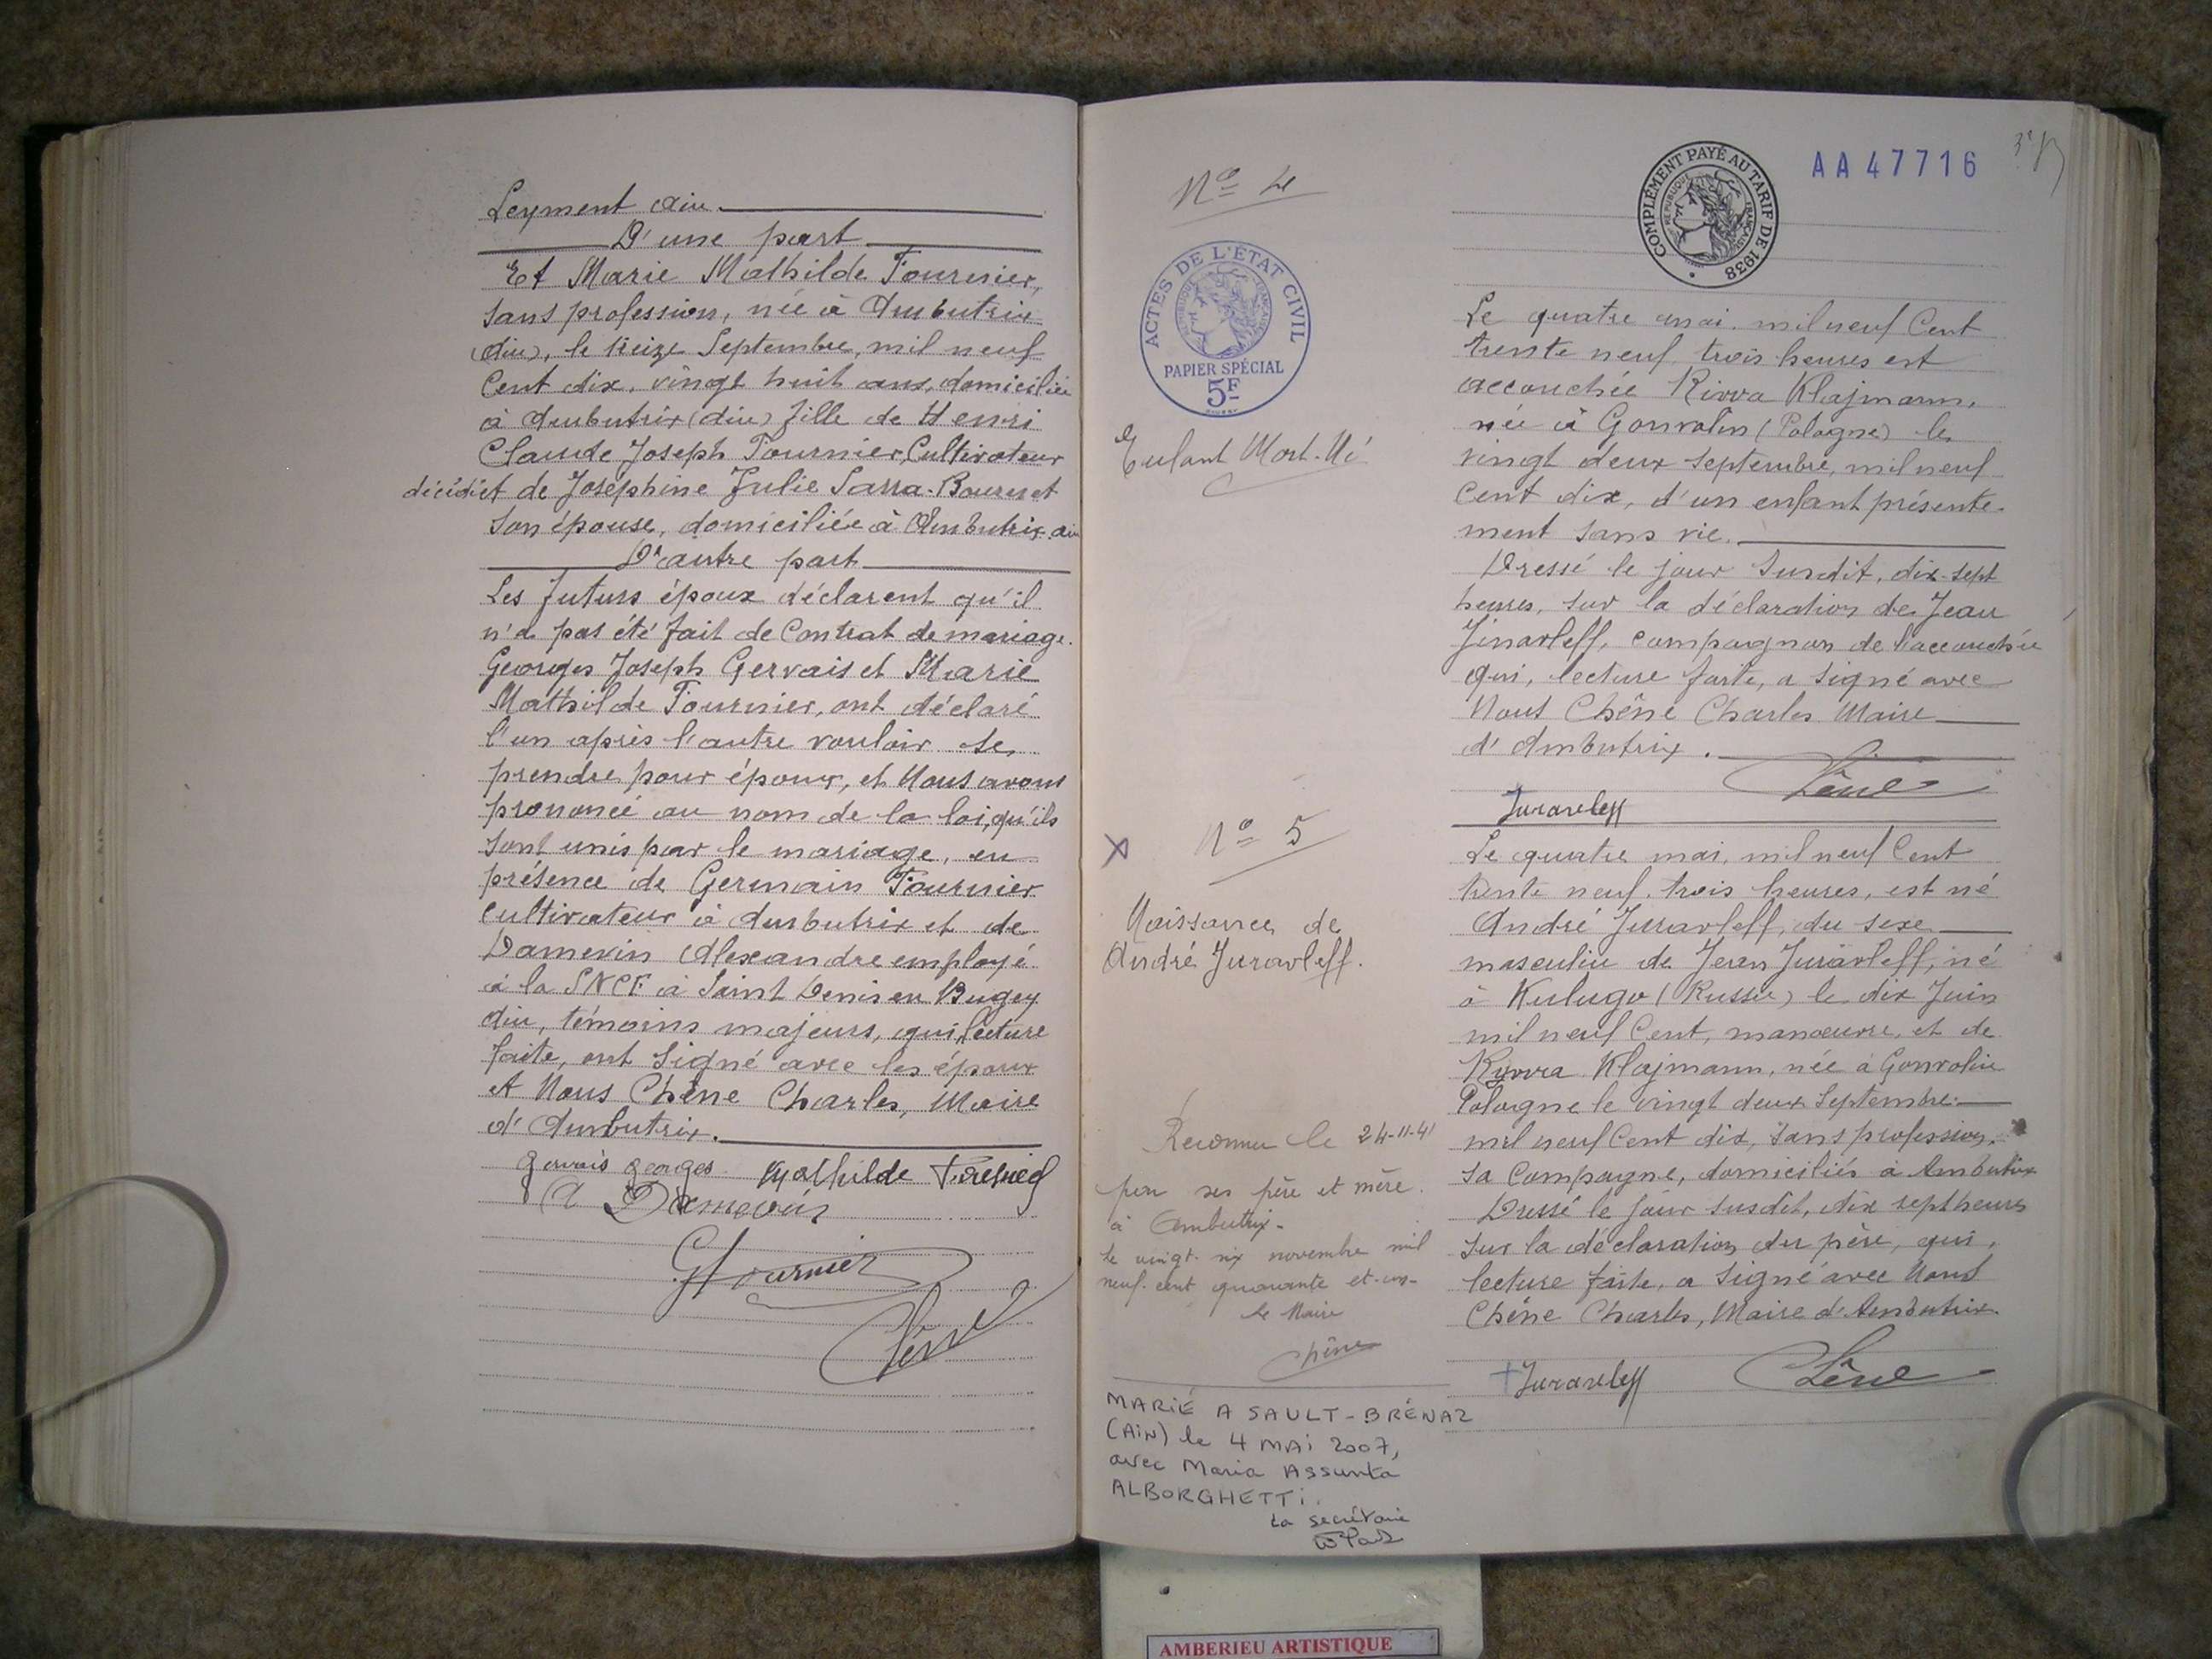 Leyment Ain.
D'une part
Et Marie Mathilde Fournier,
sans profession, née à Ambutrix
(Ain), le treize Septembre, mil neuf
Cent dix, vingt huit ans, domiciliée
à Ambutrix (Ain) fille de Henri
Claude Joseph Fournier, Cultivateur
décédé et de Joséphine Julie Sarra-Bournet
son épouse, domiciliée à Ambutrix. Ain
D'autre part
Les futurs époux déclarent qu'il
n'a pas été fait de Contrat de mariage.
Georges Joseph Gervais et Marie
Mathilde Fournier, ont déclaré
l'un après l'autre vouloir se
prendre pour époux, et Nous avons
prononcé au nom de la loi, qu'ils
sont unis par le mariage, en
présence de Germain Fournier
Cultivateur à Ambutrix et de
Damevin Alexandre employé
à la SNCF à Saint Denis en Bugey
Ain, témoins majeurs, qui, lecture
faite, ont signé avec les époux
et Nous Chêne Charles, Maire
d'Ambutrix.
Gervais georges Mathilde Fournier
A Damevin
G Fournier
Chêne
N° 4
ACTES DE L'ÉTAT CIVIL
RÉPUBLIQUE FRANÇAISE
PAPIER SPÉCIAL
5F
Enfant Mort-Né
COMPLÉMENT PAYÉ AU TARIF DE 1938
RÉPUBLIQUE FRANÇAISE
AA47716
Le quatre mai, mil neuf Cent
trente neuf, trois heures est
accouchée Rivva Klajmann,
née à Gonvolin (Pologne) le
vingt deux septembre, mil neuf
Cent dix, d'un enfant présente-
ment sans vie.
Dressé le jour susdit, dix-sept
heures, sur la déclaration de Jean
compagnon de l'accouchée
qui, lecture faite, a signé avec
Nous Chêne Charles Maire
d'Ambutrix.
Chêne
Juravleff
X N° 5
Naissance de
André Juravleff.
Le quatre mai, mil neuf Cent
trente neuf, trois heures, est né
André Juravleff, du sexe
masculin de Jean Juravleff, né
à Kulugo (Russie) le dix Juin
mil neuf Cent, manœuvre, et de
Klajmann, née à Gonvolin
Pologne le vingt deux Septembre
mil neuf Cent dix, sans profession,
sa Compagne, domiciliés à Ambutrix
Dressé le jour susdit, dix sept heures
sur la déclaration du père, qui,
lecture faite, a signé avec Nous
Chêne Charles, Maire d'Ambutrix.
Juravleff Chêne
Reconnu le 24-11-41
par ses père et mère
à Ambutrix-
le vingt-six novembre mil
neuf-cent quarante-et-un-
Le Maire
Chêne
MARIÉ A SAULT-BRÉNAZ
(AIN) le 4 MAI 2007,
avec Maria Assunta
ALBORGHETTI.
La secrétaire
AMBERIEU ARTISTIQUE